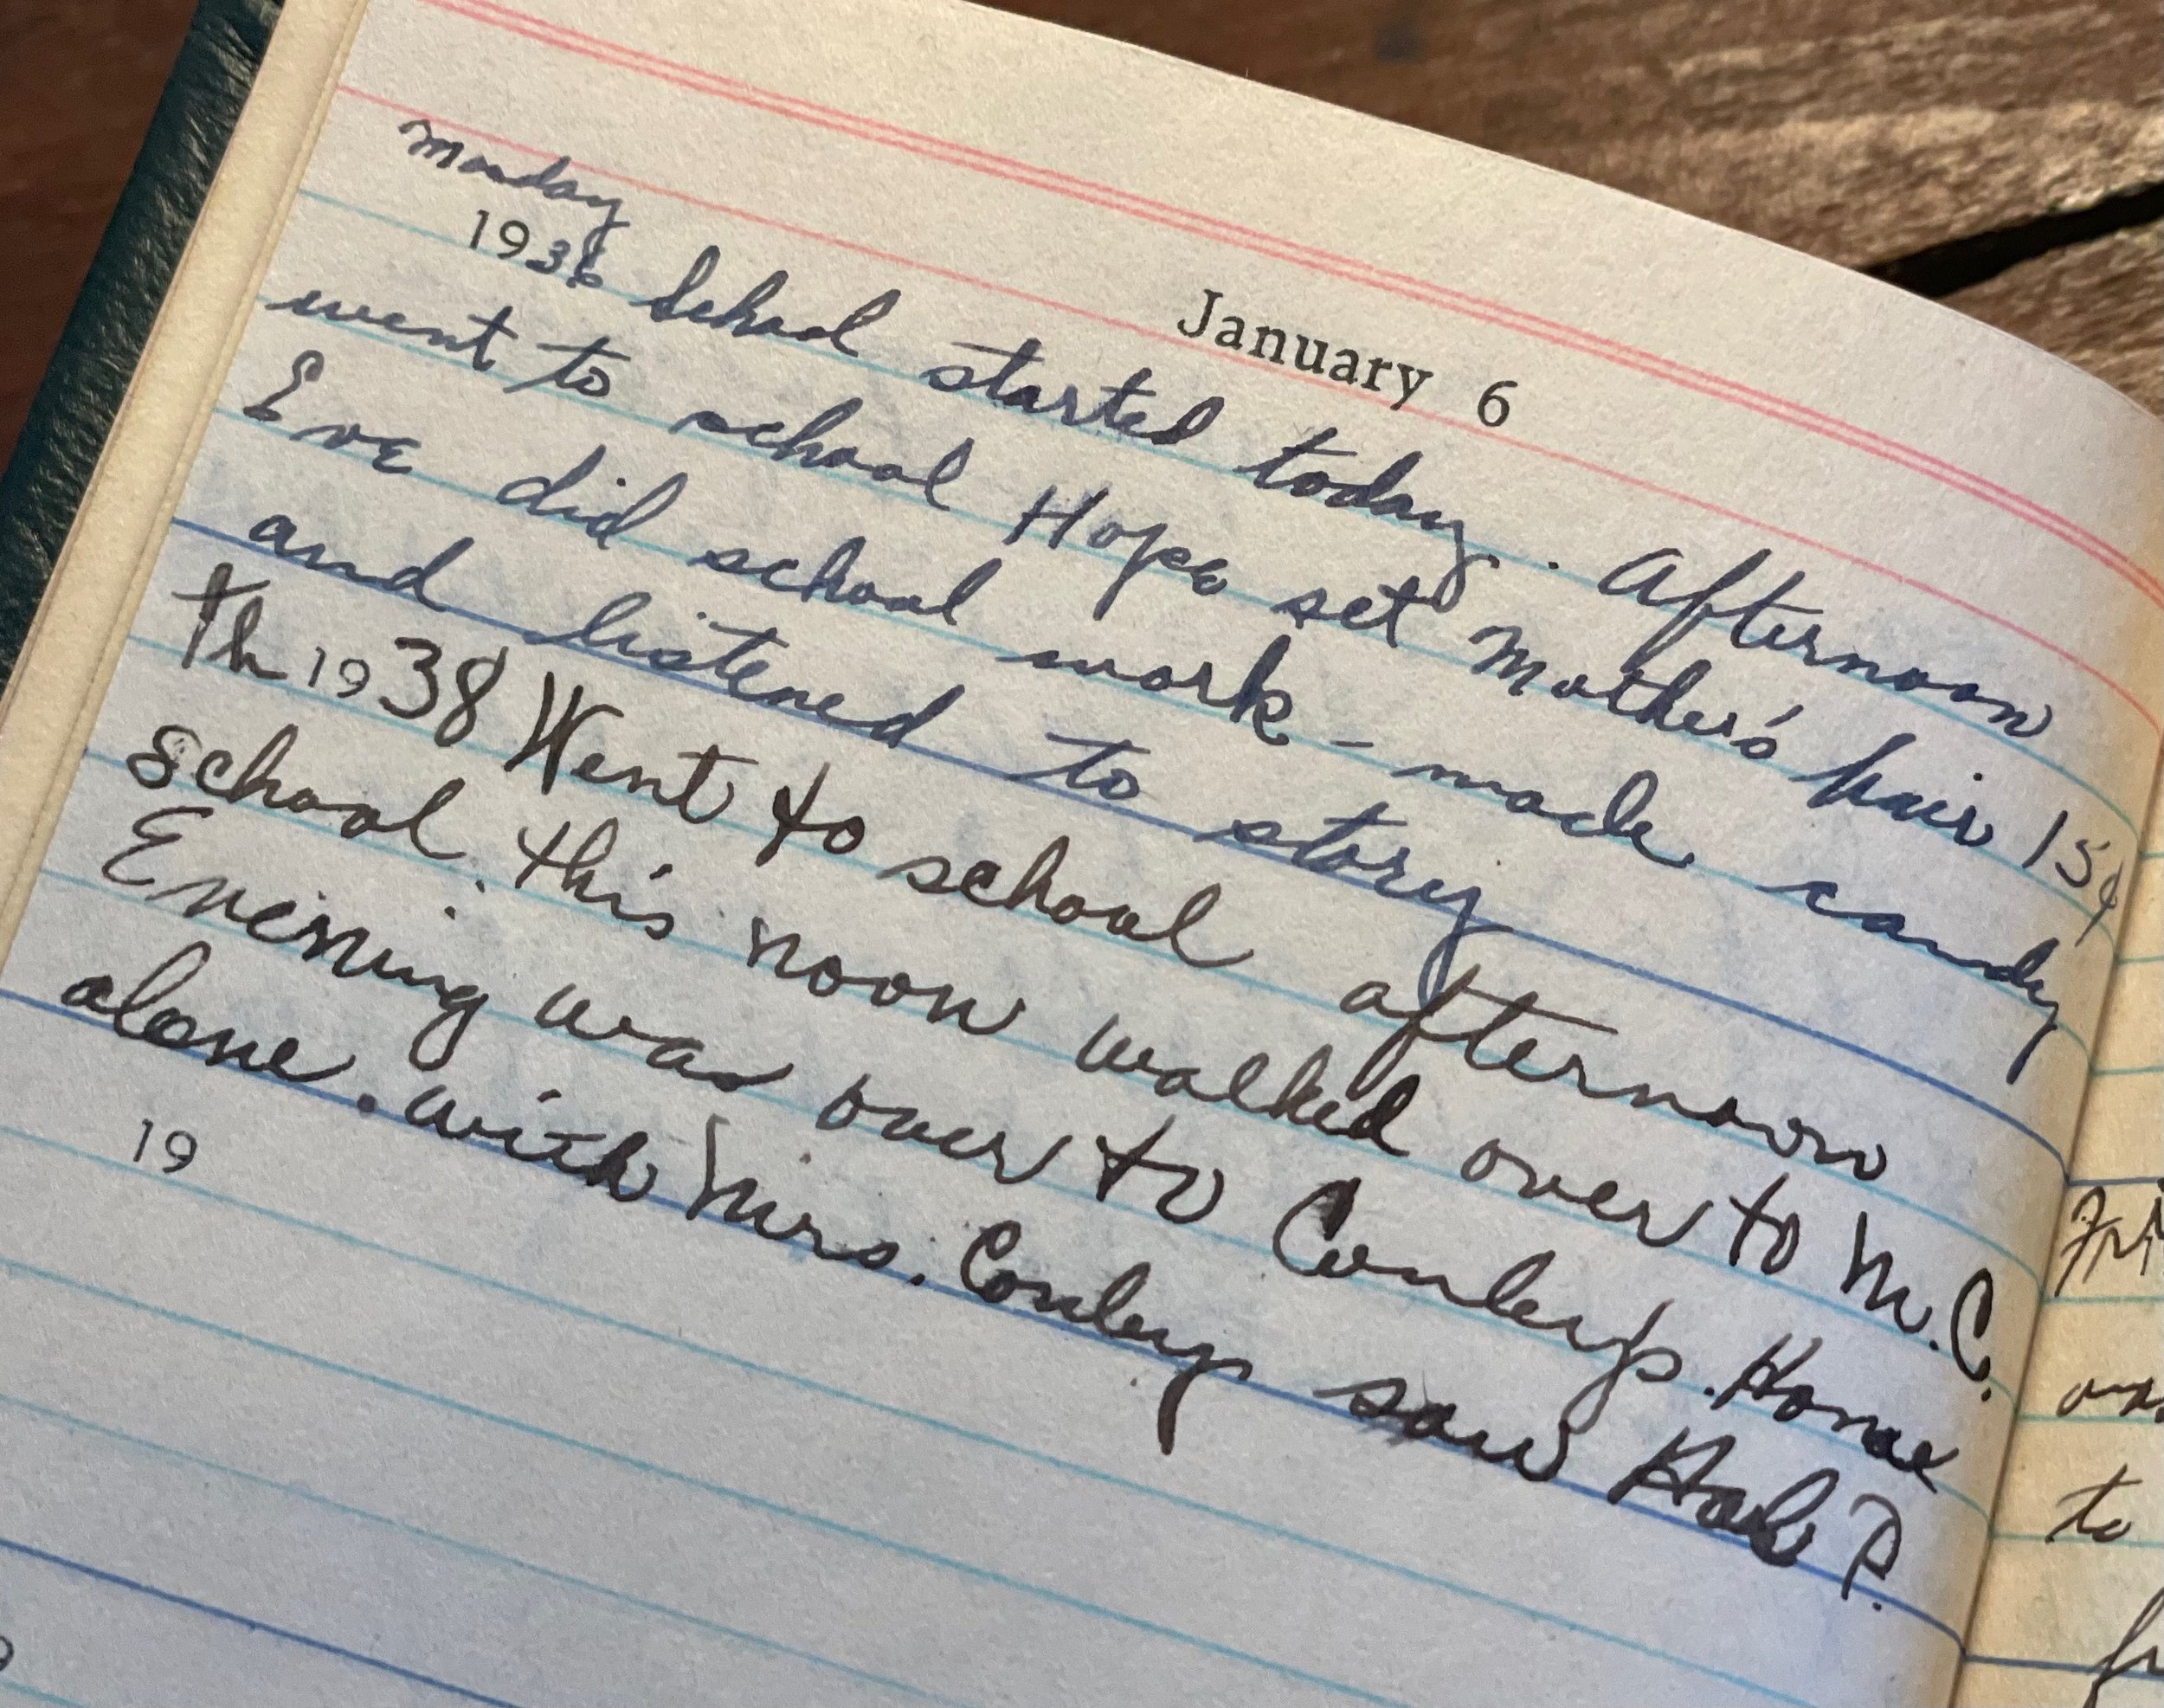 January 6
Monday
1936 School started today. Afternoon
went to school Hope set Mother's hair 15¢
Eve did school work - made candy
and listened to story
Th 1938 Went to school afternoon
school. this noon walked over to M.C.
Evening was over to Conleys. Home
alone. with Mrs. Conley saw Hal P.
19
Fri
to